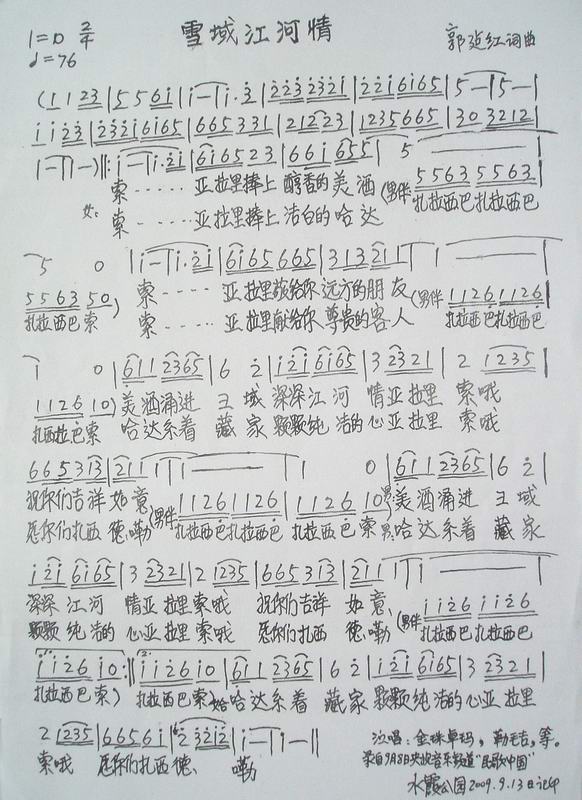 雪域江河情
1=D 2/4
♩=76
郭延红词曲
(1 1 2 3 | 5 5 6 1 | i — | i · 3 | 2 2 3 2 3 2 1 | 2 2 1 6 1 6 5 | 5 — | 5 — |
1 1 2 3 | 2 3 2 1 6 1 6 5 | 6 6 5 3 3 1 | 2 1 2 2 3 | 1 2 3 5 6 6 5 | 3 0 3 2 1 2 |
1 — | 1 —) ‖: i — | i · 2 i | 6 i 6 5 2 3 | 6 6 i 6 5 5 | 5 — |
女: 索 · · · · · 亚拉里捧上 醇香的 美 酒 (男伴 5 5 6 3 5 5 6 3
索 · · · · · 亚拉里捧上 洁白的 哈 达 扎拉西巴扎拉西巴
5 0 | i — | i · 2 i | 6 i 6 5 6 6 5 | 3 1 3 2 1 | 1 — |
5 5 6 3 5 0 ) 索 · · · · · 亚拉里敬给你 远方的朋友 (男伴 1 1 2 6 1 1 2 6
扎拉西巴 索 索 · · · · · 亚拉里献给你 尊贵的客人 扎拉西巴扎拉西巴
1 0 | 6 1 1 2 3 6 5 | 6 2 | i 2 i 6 i 6 5 | 3 2 3 2 1 | 2 1 2 3 5 |
1 1 2 6 1 0 ) 美酒涌进 王 域 深深江 河 情亚拉里 索哦
扎西拉巴索 哈达系着 藏 家 颗颗纯 洁的 心亚拉里 索哦
6 6 5 3 1 3 | 2 1 1 1 | 1 — | 1 0 | 6 1 1 2 3 6 5 | 6 2 |
祝你们吉祥 如意 (男伴 1 1 2 6 1 1 2 6 | 1 1 2 6 1 0 ) 男: 美酒涌进 王 域
愿你们扎西 德勒 扎拉西巴扎拉西巴 扎拉西巴 索 男: 哈达系着 藏 家
i 2 i 6 i 6 5 | 3 2 3 2 1 | 2 1 2 3 5 | 6 6 5 3 1 3 | 2 1 1 1 | 1 — |
深深 江 河 情亚拉里索哦 祝你们吉祥 如 意 (男伴 i i 2 6 i i 2 6
颗颗 纯 洁的 心亚拉里索哦 愿你们扎西 德勒 扎拉西巴 扎拉西巴
1. i i 2 6 i 0 :‖ 2. i i 2 6 i 0 | 6 1 1 2 3 6 5 | 6 2 | i 2 i 6 i 6 5 | 3 2 3 2 1 |
扎拉西巴 索) 扎拉西巴 索) 哈达系着 藏 家 颗颗纯洁的心亚拉里
2 1 2 3 5 | 6 6 5 6 i | 2 3 2 1 2 | i — | i — ‖
索哦 愿你们扎西 德 嘞
演唱: 金珠卓玛, 勒毛吉, 等。
录自9月8日央视音乐频道"民歌中国"
水霞公园2009.9.13日记印